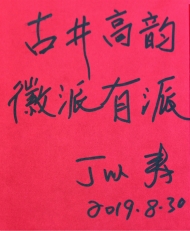 古井高韵
徽派有派
丁以寿
2019.8.30